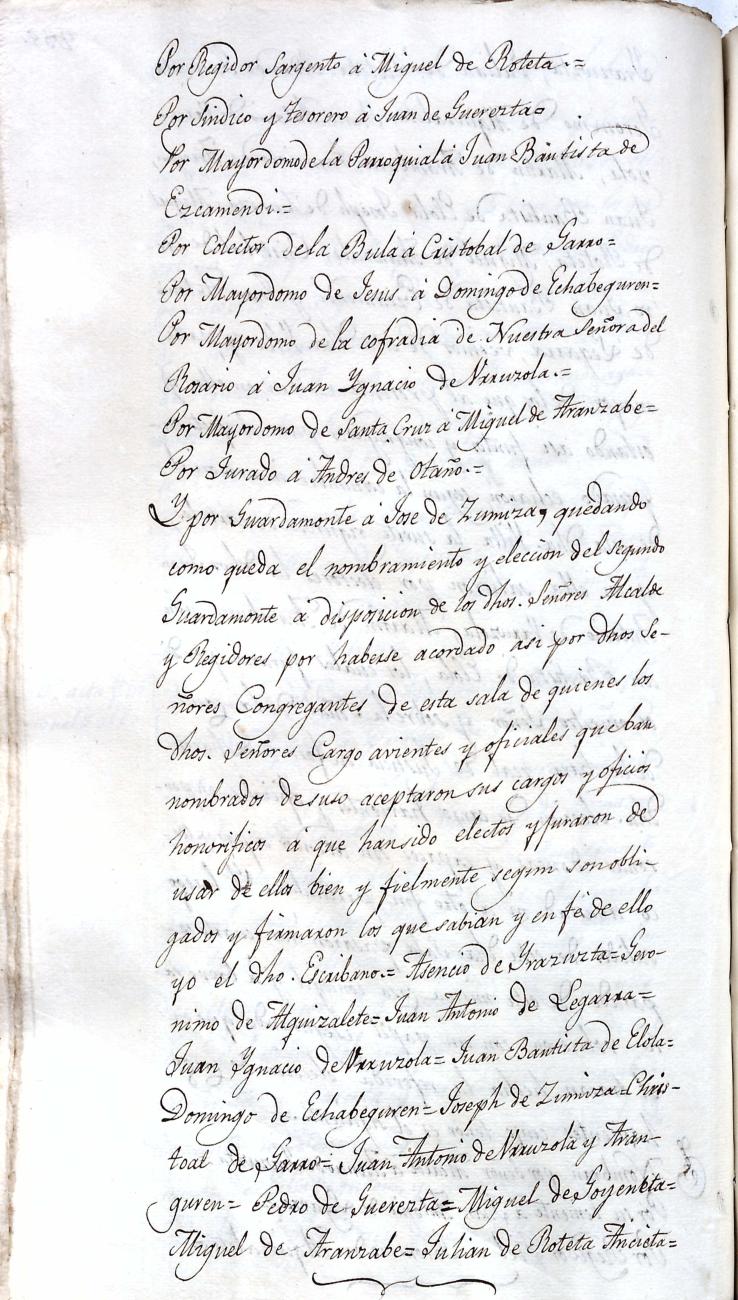 Por Regidor Sargento á Miguel de Roteta.=
Por Sindico y tesorero á Juan de Guerezta=
Por Mayordomo de la Parroquial á Juan Bautista de
Ezcamendi.=
Por Colector de la Bula á Cristobal de Garro=
Por Mayordomo de Jesus á Domingo de Echabeguren=
Por Mayordomo de la cofradia de Nuestra Señora del
Rosario á Juan Ygnacio de Urruzola.=
Por Mayordomo de Santa Cruz á Miguel de Aranzabe=
Por Jurado á Andres de Otaño.=
Y por Guardamonte á Jose de Zumiza, quedando
como queda el nombramiento y eleccion del segundo
Guardamonte a disposicion de los dhos. Señores Alcalde
y Regidores por haberse acordado asi por dhos Se-
ñores Congregantes de esta sala de quienes los
dhos. Señores Cargo avientes y oficiales que ban
nombrados desuso aceptaron sus cargos y oficios
honorificos á que han sido electos y juraron de
usar de ellos bien y fielmente segun son obli-
gados y firmaron los que sabian y en fé de ello
yo el dho. Escribano.= Asencio de Yrazuzta= Gero-
nimo de Alquizalete= Juan Antonio de Legarra=
Juan Ygnacio de Urruzola= Juan Bautista de Elola=
Domingo de Echabeguren= Joseph de Zumiza= Chris-
toal de Garro= Juan Antonio de Urruzola y Aran-
guren= Pedro de Guerezta= Miguel de Goyeneta=
Miguel de Aranzabe= Julian de Roteta Ancieta=